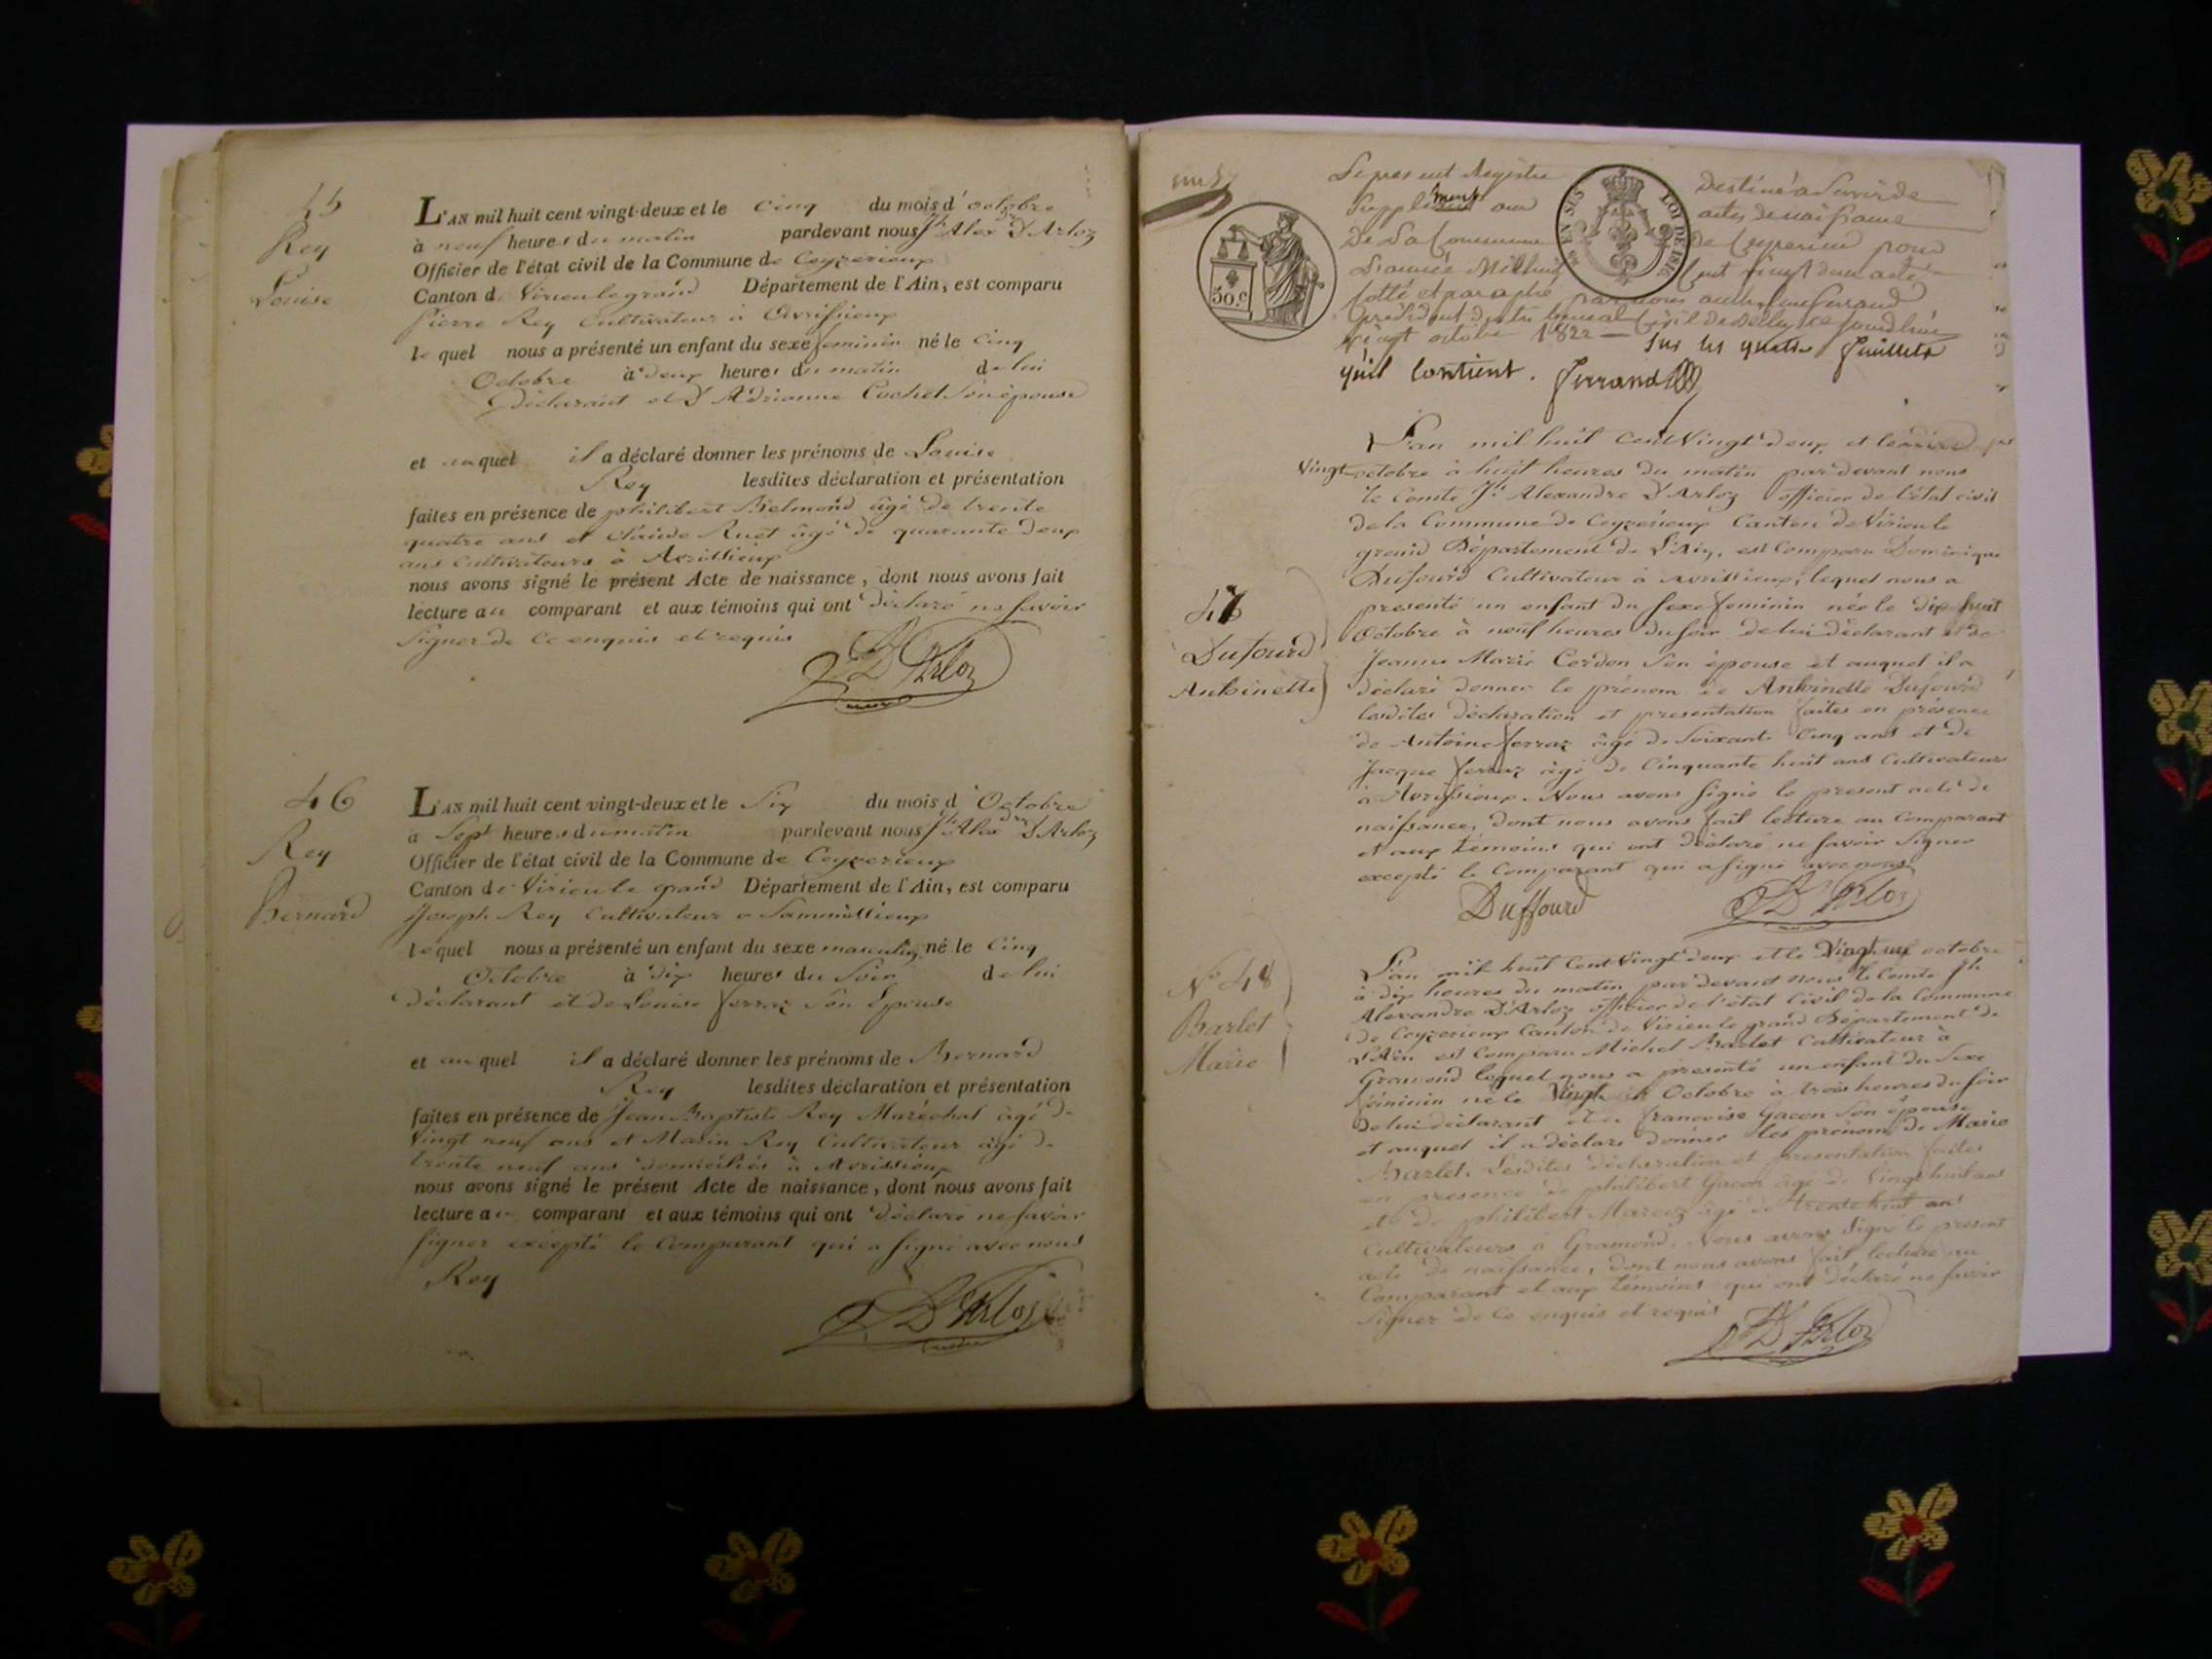 45
Rey
Louise
L'AN mil huit cent vingt-deux et le cinq du mois d'octobre
à neuf heures du matin pardevant nous Jh Alexdre D'Arloz
Officier de l'état civil de la Commune de Ceyzerieux
Canton de Virieu le grand Département de l'Ain, est comparu
Pierre Rey Cultivateur à Avrissieux
lequel nous a présenté un enfant du sexe feminin né le Cinq
Octobre à deux heures du matin de lui
Déclarant et D'Adrianne Cochet Son épouse
et auquel il a déclaré donner les prénoms de Louise
Rey lesdites déclaration et présentation
faites en présence de philibert Belmond âgé de trente
quatre ans et Claude Ruet âgé de quarante deux
ans Cultivateurs à Avrissieux
nous avons signé le présent Acte de naissance, dont nous avons fait
lecture au comparant et aux témoins qui ont déclaré ne savoir
Signer de ce enquis et requis
D'Arloz
46
Rey
Bernard
L'AN mil huit cent vingt-deux et le Six du mois d'Octobre
à Sept heures du matin pardevant nous Jh Alexdre D'Arloz
Officier de l'état civil de la Commune de Ceyzerieux
Canton de Virieu le grand Département de l'Ain, est comparu
Joseph Rey Cultivateur a
lequel nous a présenté un enfant du sexe masculin né le Cinq
Octobre à dix heures du Soir de lui
Déclarant et de Louise ferraz Son Epouse
et auquel il a déclaré donner les prénoms de Bernard
Rey lesdites déclaration et présentation
faites en présence de Jean Baptiste Rey Maréchal âgé de
Vingt neuf ans et Rey Cultivateur âgé de
trente neuf ans domiciliés à Avrissieux
nous avons signé le présent Acte de naissance, dont nous avons fait
lecture au comparant et aux témoins qui ont déclaré ne savoir
signer excepté le Comparant qui a signé avec nous
Rey
D'Arloz
50.c
EN SUS
LOI DE 1816
Le present Registre Destiné a Servir de
Supplément aux actes de naissance
De la Commune de Ceyzerieux pour
L'année Mil huit Cent vingt deux a été
Cotté et paraphé par nous ferrand
président du tribunal Civil de Belley ce jourd'hui
vingt octobre 1822 — Sur les quatre feuillets
qu'il Contient. ferrand
L'an mil huit Cent Vingt deux et le
Vingt octobre à huit heures du matin par devant nous
le Comte Jh Alexandre D'Arloz officier de l'état civil
de la Commune de Ceyzerieux Canton de Virieu le
grand Département de L'Ain, est Comparu Dominique
Dufourd Cultivateur à Avrissieux, lequel nous a
presenté un enfant du sexe feminin née le dix huit
Octobre à neuf heures du soir de lui déclarant et de
Jeanne Marie Cerdon Son épouse et auquel il a
déclaré donner le prénom de Antoinette Dufourd
lesdites déclaration et presentation faites en présence
de Antoine ferraz âgé de Soixante Cinq ans et de
Jacque ferraz âgé de Cinquante huit ans Cultivateurs
à Avrissieux. Nous avons signé le present acte de
naissance, dont nous avons fait lecture au Comparant
et aux témoins qui ont déclaré ne savoir Signer
excepté le Comparant qui a signé avec nous
47
Dufourd
Antoinette
Duffourd
D'Arloz
No 48
Barlet
Marie
L'an mil huit Cent Vingt deux et le Vingt un octobre
à dix heures du matin par devant nous le Comte Jh
Alexandre D'Arloz officier de l'état Civil de la Commune
de Ceyzerieux Canton de Virieu le grand Département de
L'Ain est Comparu Michel Barlet Cultivateur à
Gramond lequel nous a presenté un enfant du Sexe
féminin né le Vingt Octobre à trois heures du soir
de lui déclarant et de francoise Gacon Son épouse
et auquel il a déclaré donner les prénom de Marie
Barlet. Lesdites déclaration et presentation faites
en presence de philibert Gacon âgé de Vingt huit ans
et de philibert âgé de trente huit ans
Cultivateurs à Gramond. Nous avons Signé le present
acte de naissance, dont nous avons fait lecture au
Comparant et aux témoins qui ont déclaré ne savoir
Signer de ce enquis et requis
D'Arloz